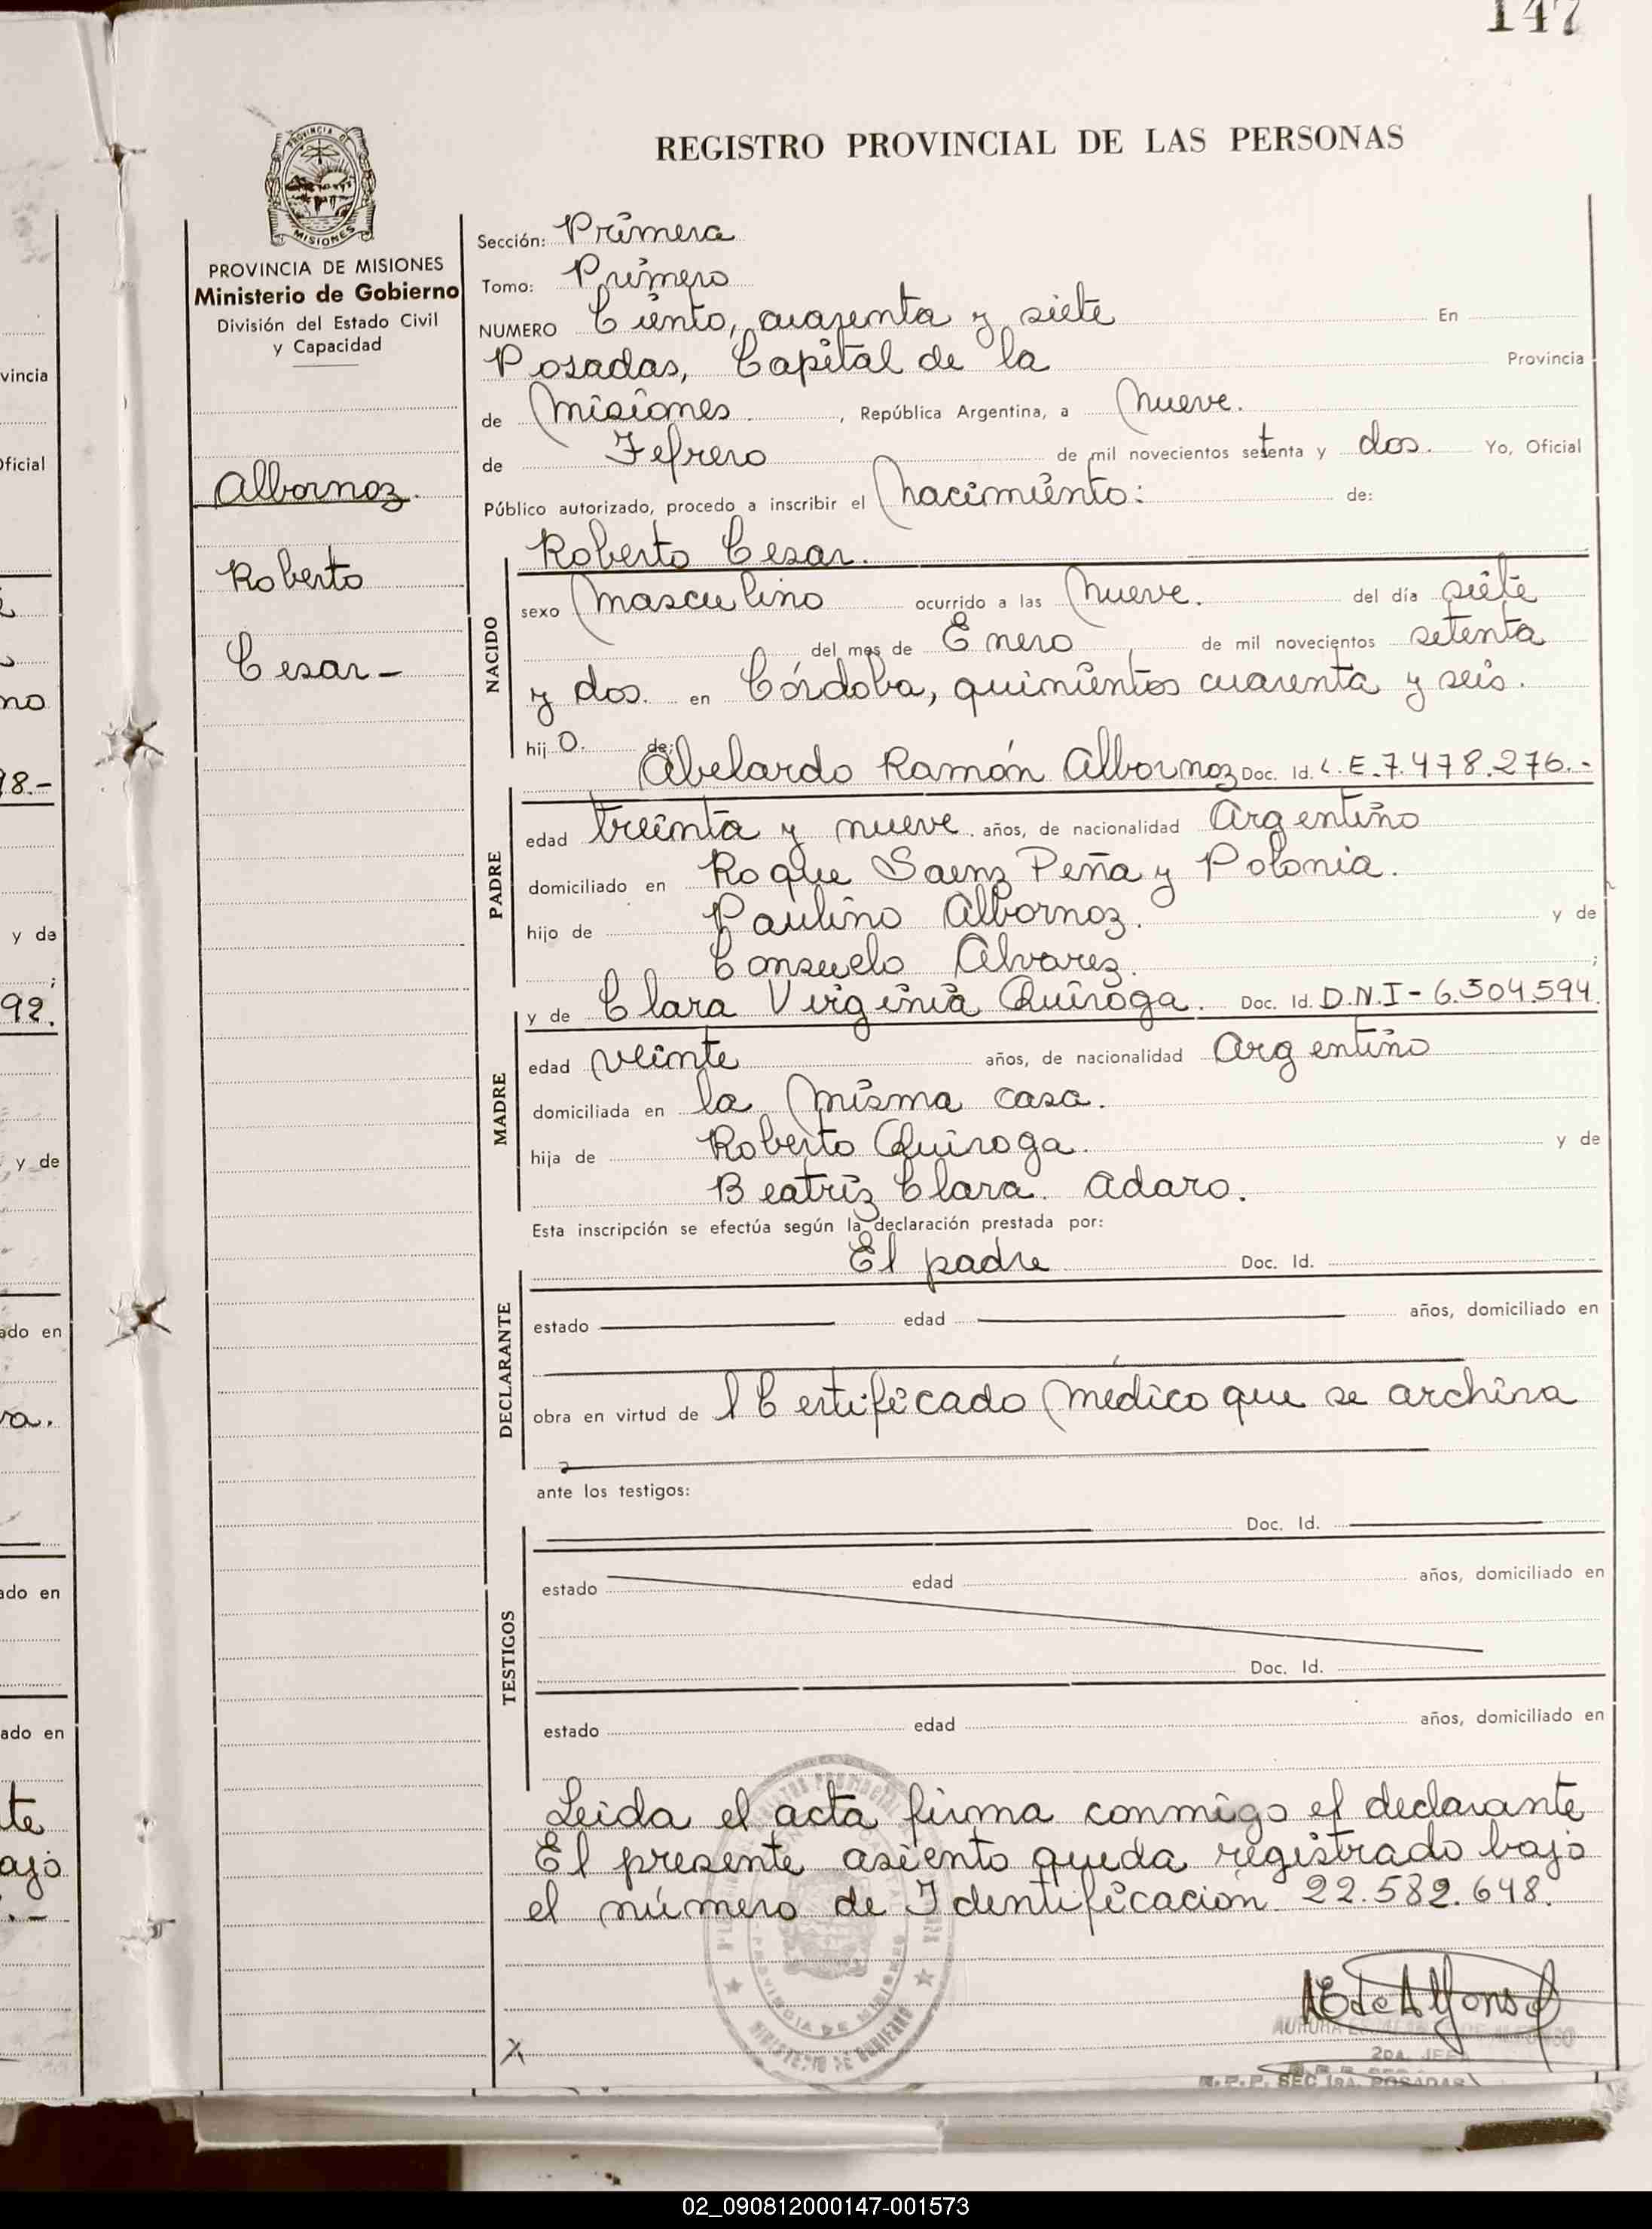 147
REGISTRO PROVINCIAL DE LAS PERSONAS
PROVINCIA DE
MISIONES
PROVINCIA DE MISIONES
Ministerio de Gobierno
División del Estado Civil
y Capacidad
Albornoz.
Roberto
Cesar-
Sección: Primera
Tomo: Primero
NUMERO Ciento, cuarenta y siete En
Posadas, Capital de la Provincia
de Misiones , República Argentina, a Nueve.
de Febrero de mil novecientos setenta y dos. Yo, Oficial
Público autorizado, procedo a inscribir el Nacimiento: de:
Roberto Cesar.
NACIDO
sexo Masculino ocurrido a las Nueve. del día siete
del mes de Enero de mil novecientos setenta
y dos. en Córdoba, quinientos cuarenta y seis.
hijo. de:
Abelardo Ramón Albornoz Doc. Id. L.E.7.478.276.-
PADRE
edad treinta y nueve. años, de nacionalidad Argentino
domiciliado en Roque Saenz Peña y Polonia.
hijo de Paulino Albornoz. y de
Consuelo Alvarez. ;
y de Clara Virginia Quiroga. Doc. Id. D.N.I-6.504.594.
MADRE
edad veinte años, de nacionalidad Argentino
domiciliada en la misma casa.
hija de Roberto Quiroga. y de
Beatriz Clara. Adaro.
Esta inscripción se efectúa según la declaración prestada por:
El padre Doc. Id.
DECLARANTE
estado edad años, domiciliado en
obra en virtud de l Certificado Médico que se archiva
ante los testigos:
Doc. Id.
TESTIGOS
estado edad años, domiciliado en
Doc. Id.
estado edad años, domiciliado en
Leida el acta firma conmigo el declarante
El presente asiento queda registrado bajo
el número de Identificación 22.582.648.
PROVINCIA DE MISIONES
MINISTERIO DE GOBIERNO
AEdeAlfonso
2DA. JEFA
R.P.P. SEC 1RA. POSADAS
vincia
Oficial
no
98.-
y de
;
92.
y de
ado en
va.
ado en
ado en
te
ajo
02_090812000147-001573